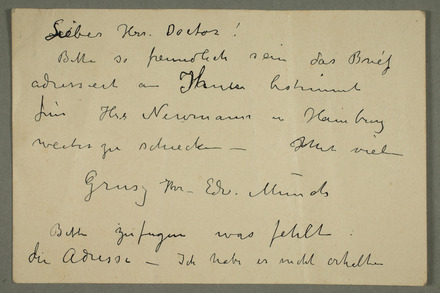 Lieber Hrr. Doctor!
Bitte so freundlich sein das Brief
adressiert an Ihnen bestimmt
für Hrr Newmann in Hamburg
weiter zu schicken — Mit viel
Gruss Ihr Edv. Munch
Bitte zufügen was fehlt.
die Adresse — Ich habe es nicht erhalten